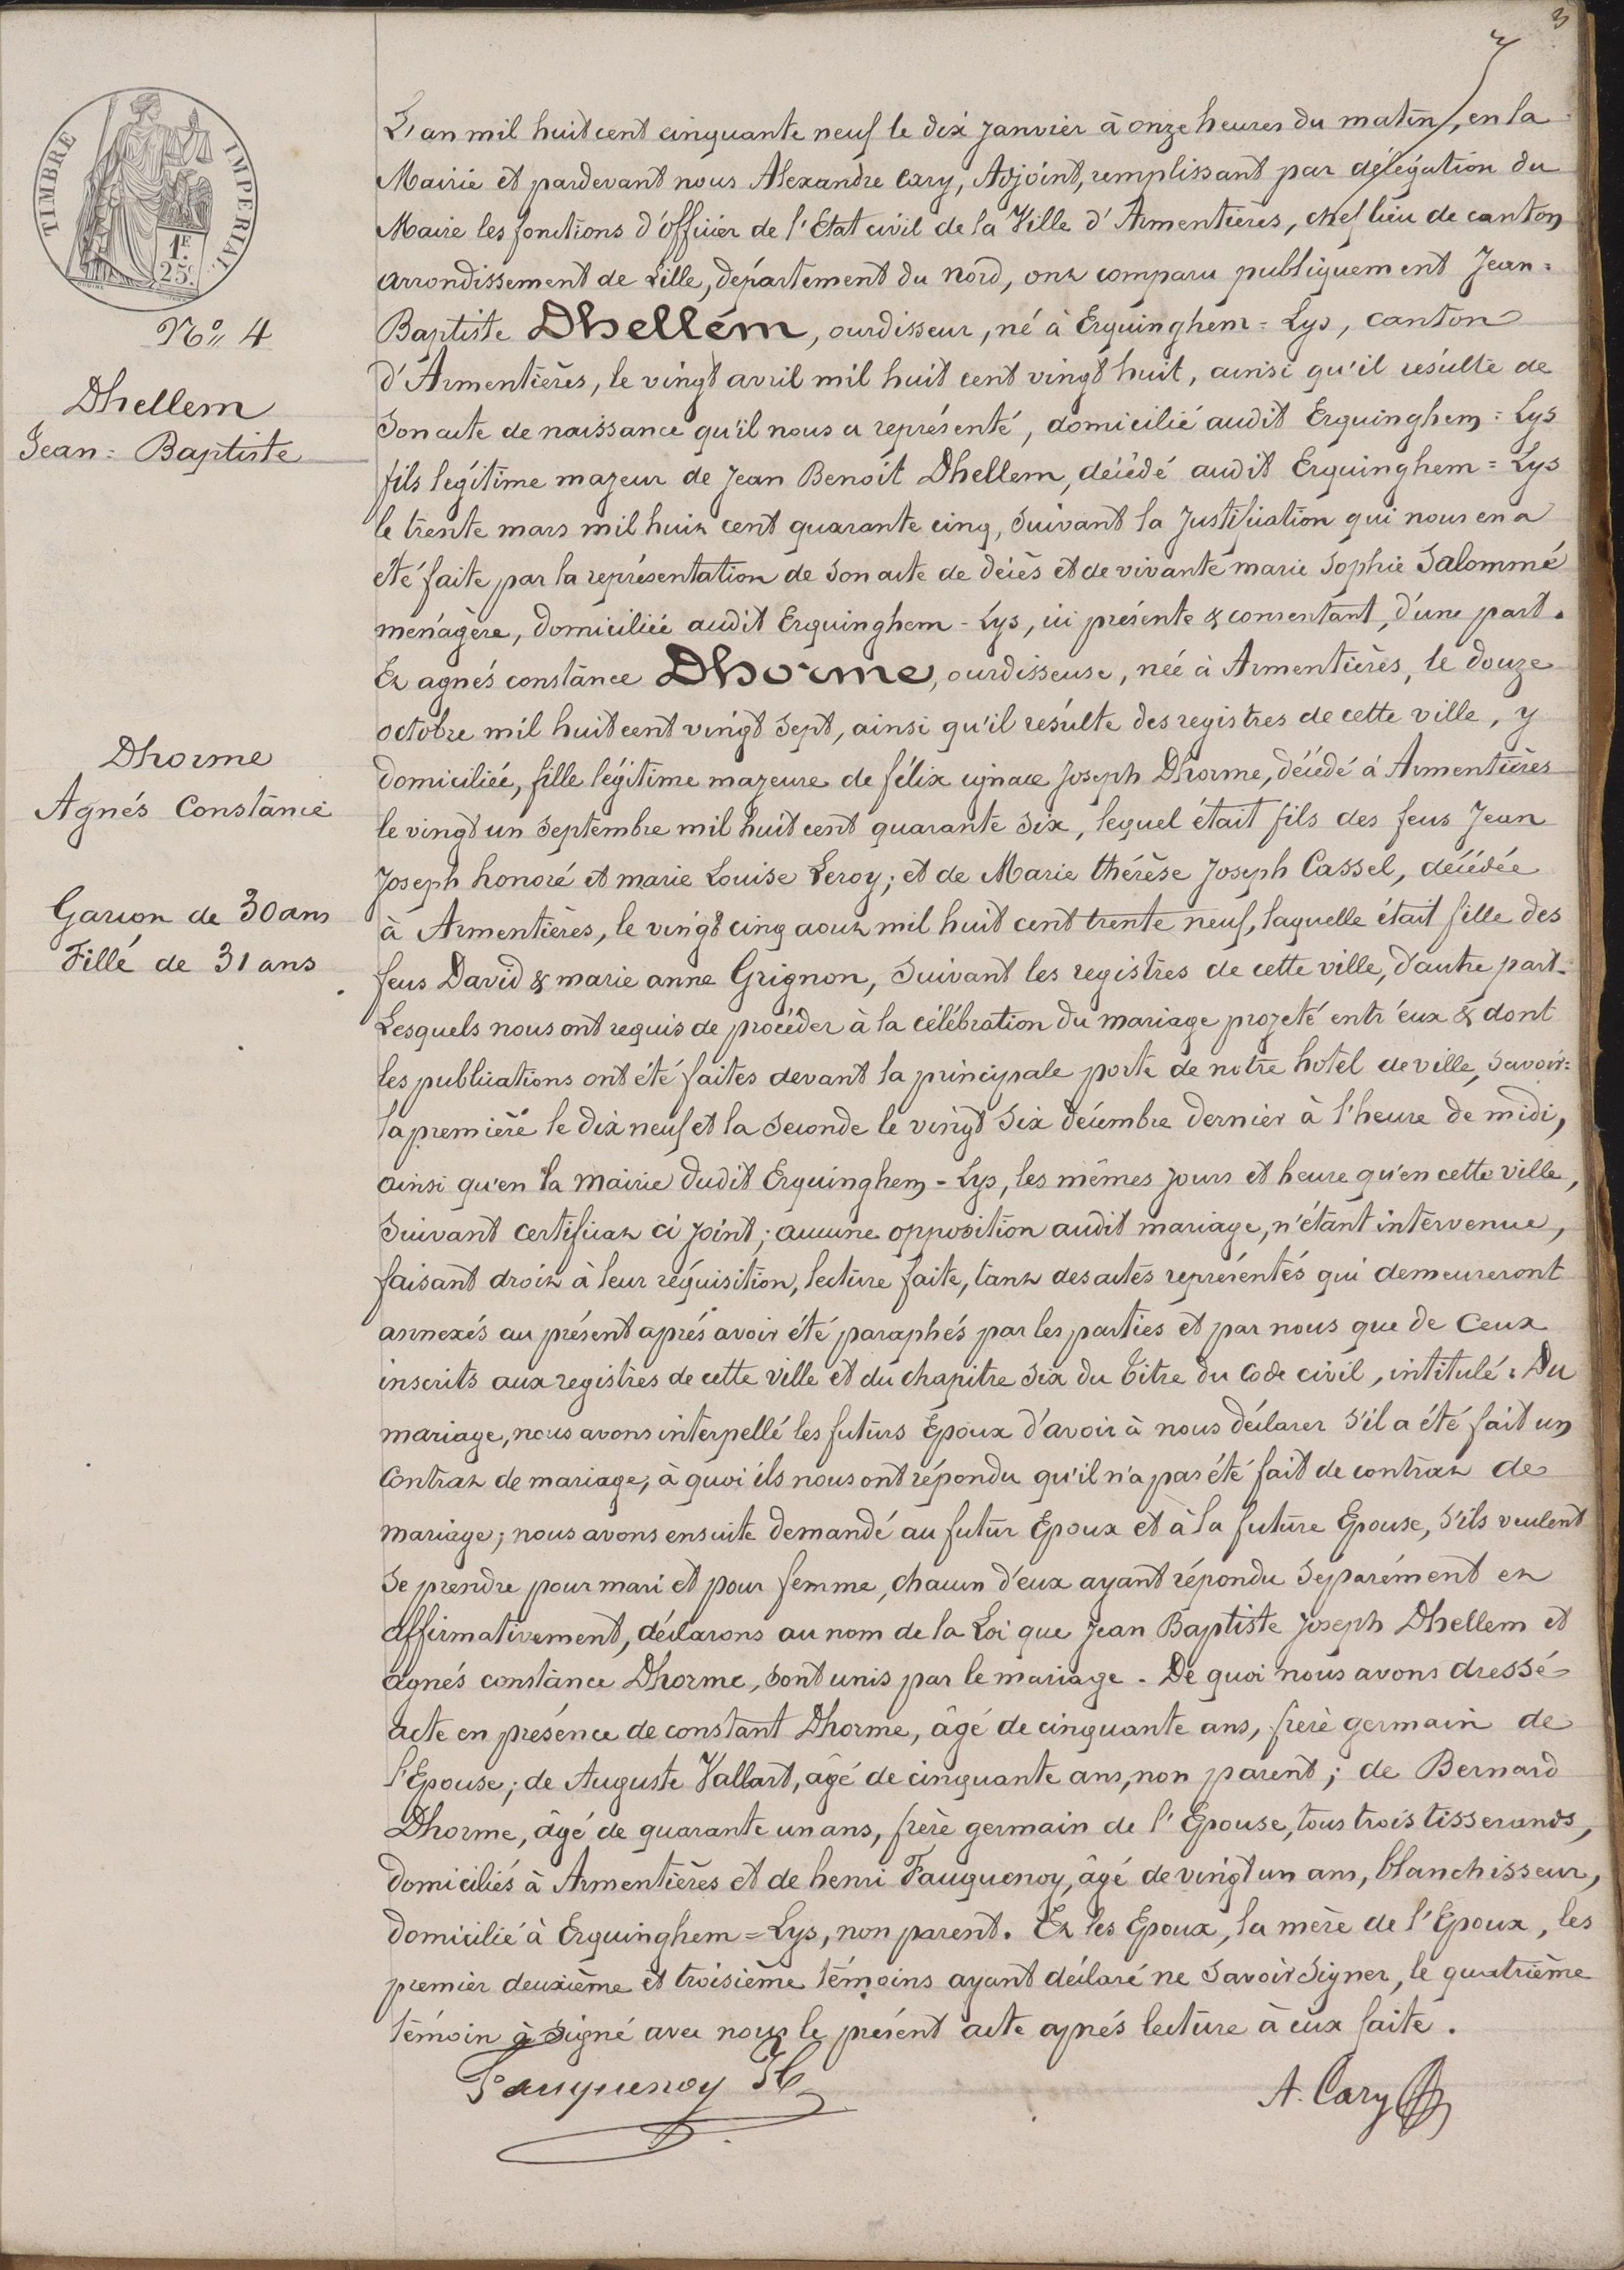 3
TIMBRE IMPERIAL
1F.
25c.
N° 4
Dhellem
Jean = Baptiste
Dhorme
Agnés Constance
Garcon de 30 ans
Fille de 31 ans
L'an mil huit cent cinquante neuf le dix Janvier à onze heures du matin, en la
Mairie et pardevant nous Alexandre Cary, Adjoint, remplissant par délégation du
Maire les fonctions d'officier de l'Etat civil de la Ville d'Armentières, chef lieu de canton
arrondissement de Lille, département du Nord, ont comparu publiquement Jean =
Baptiste Dhellem, ourdisseur, né à Erquinghem = Lys, canton
d'Armentières, le vingt avril mil huit cent vingt huit, ainsi qu'il résulte de
Son acte de naissance qu'il nous a représenté, domicilié audit Erquinghem = Lys
fils légitime majeur de Jean Benoit Dhellem, décédé audit Erquinghem = Lys
le trente mars mil huit cent quarante cinq, Suivant la Justification qui nous en a
été faite par la représentation de Son acte de décès et de vivante marie Sophie Salommé
menagère, domiciliée audit Erquinghem - Lys, ici présente & consentant, d'une part.
Et agnés constance Dhorme, ourdisseuse, née à Armentières, le douze
octobre mil huit cent vingt Sept, ainsi qu'il résulte des registres de cette ville, y
domiciliée, fille légitime majeure de félix ignace Joseph Dhorme, décédé à Armentières
le vingt un Septembre mil huit cent quarante Six, lequel était fils des feus Jean
Joseph honoré et marie Louise Leroy; et de Marie thérèse Joseph Cassel, décédée
à Armentières, le vingt cinq aout mil huit cent trente neuf, laquelle était fille des
feus David & marie anne Grignon, Suivant les registres de cette ville, d'autre part.
Lesquels nous ont requis de procéder à la célébration du mariage projeté entr'eux & dont
les publications ont été faites devant la principale porte de notre hotel de ville, Savoir =
la première le dix neuf et la Seconde le vingt Six décembre dernier à l'heure de midi,
ainsi qu'en la mairie dudit Erquinghem - Lys, les mêmes jours et heure qu'en cette ville,
Suivant certificat ci joint; aucune opposition audit mariage, n'étant intervenue,
faisant droit à leur réquisition, lecture faite, tant des actes représentés qui demeureront
annexés au présent aprés avoir été paraphés par les parties et par nous que de Ceux
inscrits aux registres de cette ville et du chapitre Six du titre du Code civil, intitulé : Du
mariage, nous avons interpellé les futurs Epoux d'avoir à nous déclarer S'il a été fait un
Contrat de mariage, à quoi ils nous ont répondu qu'il n'a pas été fait de contrat de
mariage; nous avons ensuite demandé au futur Epoux et à la future Epouse, S'ils veulent
Se prendre pour mari et pour femme, chacun d'eux ayant répondu Séparément et
affirmativement, déclarons au nom de la Loi que Jean Baptiste Joseph Dhellem et
agnés constance Dhorme, Sont unis par le mariage. De quoi nous avons dressé
acte en présence de constant Dhorme, âgé de cinquante ans, frère germain de
l'Epouse; de Auguste Vallart, âgé de cinquante ans, non parent; de Bernard
Dhorme, âgé de quarante un ans, frère germain de l'Epouse, tous trois tisserands,
domiciliés à Armentières et de henri Fauquenoy, âgé de vingt un ans, blanchisseur,
domicilié à Erquinghem = Lys, non parent. Et les Epoux, la mère de l'Epoux, les
premier deuxième et troisième témoins ayant déclaré ne Savoir Signer, le quatrième
témoin a Signé avec nous le présent acte aprés lecture à eux faite.
Fauquenoy H A. Cary